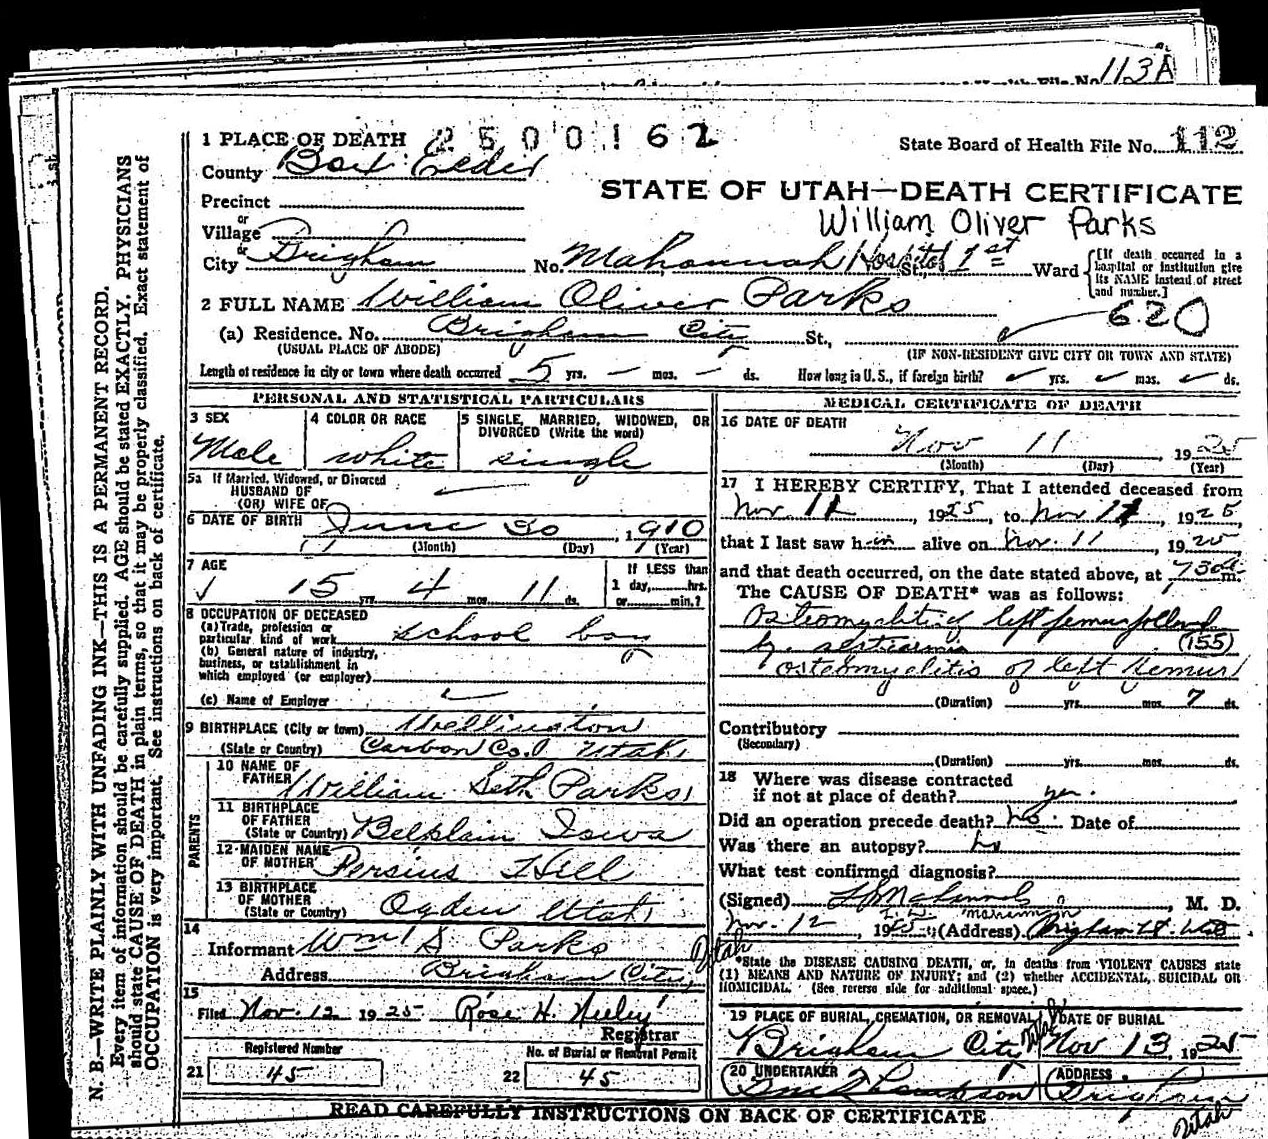 113A
1 PLACE OF DEATH 2500162
State Board of Health File No. 112
County Box Elder
STATE OF UTAH—DEATH CERTIFICATE
William Oliver Parks
Precinct
or
Village
&
City Brigham No. Hospital St., 1st Ward
[If death occurred in a hospital or institution give its NAME instead of street and number.]
2 FULL NAME William Oliver Parks
620
(a) Residence. No. Brigham City St.,
(USUAL PLACE OF ABODE) (IF NON-RESIDENT GIVE CITY OR TOWN AND STATE)
Length of residence in city or town where death occurred 5 yrs. — mos. — ds. How long in U.S., if foreign birth? ✓ yrs. ✓ mos. ✓ ds.
PERSONAL AND STATISTICAL PARTICULARS
3 SEX
Male
4 COLOR OR RACE
white
5 SINGLE, MARRIED, WIDOWED, OR DIVORCED (Write the word)
single
5a If Married, Widowed, or Divorced
HUSBAND OF
(OR) WIFE OF
6 DATE OF BIRTH June 30, 1910
(Month) (Day) (Year)
7 AGE
15 yrs. 4 mos. 11 ds.
If LESS than
1 day, hrs.
or min.?
8 OCCUPATION OF DECEASED
(a) Trade, profession or
particular kind of work school boy
(b) General nature of industry,
business, or establishment in
which employed (or employer)
(c) Name of Employer
9 BIRTHPLACE (City or town) Wellington
(State or Country) Carbon Co. Utah
PARENTS
10 NAME OF
FATHER William Seth Parks
11 BIRTHPLACE
OF FATHER
(State or Country) Belplain Iowa
12 MAIDEN NAME
OF MOTHER Persius Hill
13 BIRTHPLACE
OF MOTHER
(State or Country) Ogden Utah
14
Informant Wm S Parks
Address Brigham City, Utah
15
Filed Nov. 12 1925 Rose H. Neeley
Registrar
Registered Number
21 45
No. of Burial or Removal Permit
22 45
MEDICAL CERTIFICATE OF DEATH
16 DATE OF DEATH
Nov 11 1925
(Month) (Day) (Year)
17 I HEREBY CERTIFY, That I attended deceased from
Nov. 11, 1925, to Nov 11, 1925,
that I last saw him alive on Nov. 11, 1925
and that death occurred, on the date stated above, at 730 m.
The CAUSE OF DEATH* was as follows:
Osteomyelitis of left femur followed
by (155)
osteomyelitis of left femur
(Duration) yrs. mos. 7 ds.
Contributory
(Secondary)
(Duration) yrs. mos. ds.
18 Where was disease contracted
if not at place of death? yes.
Did an operation precede death? No. Date of
Was there an autopsy? No
What test confirmed diagnosis?
(Signed) , M. D.
Nov. 12, 1925 (Address) Brigham
*State the DISEASE CAUSING DEATH, or, in deaths from VIOLENT CAUSES state
(1) MEANS AND NATURE OF INJURY; and (2) whether ACCIDENTAL, SUICIDAL OR
HOMICIDAL. (See reverse side for additional space.)
19 PLACE OF BURIAL, CREMATION, OR REMOVAL
Brigham City Utah
DATE OF BURIAL
Nov 13, 1925
20 UNDERTAKER
ADDRESS
Brigham Utah
READ CAREFULLY INSTRUCTIONS ON BACK OF CERTIFICATE
N. B.—WRITE PLAINLY WITH UNFADING INK—THIS IS A PERMANENT RECORD.
Every item of information should be carefully supplied. AGE should be stated EXACTLY. PHYSICIANS
should state CAUSE OF DEATH in plain terms, so that it may be properly classified. Exact statement of
OCCUPATION is very important. See instructions on back of certificate.